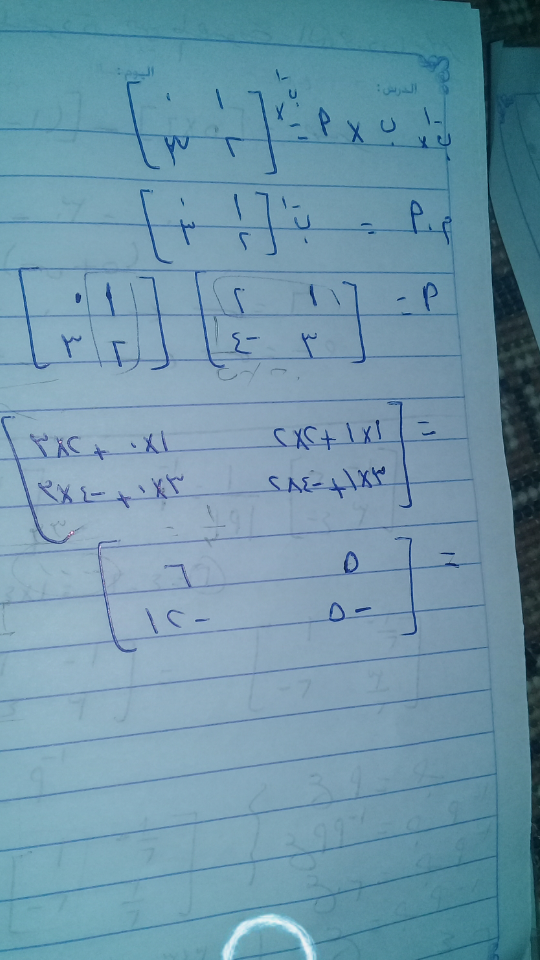 الدرس: اليوم:
ب⁻¹ × ب × أ = ب⁻¹ × [ ١ ٠
٢ ٣ ]
م.أ = ب⁻¹ [ ١ ٠
٢ ٣ ]
أ = [ ١ ٢ ] [ ١ ٠ ]
[ ٣ -٤ ] [ ٢ ٣ ]
= [ ١×١ + ٢×٢ ١×٠ + ٢×٣
٣×١ + -٤×٢ ٣×٠ + -٤×٣ ]
= [ ٥ ٦
-٥ -١٢ ]